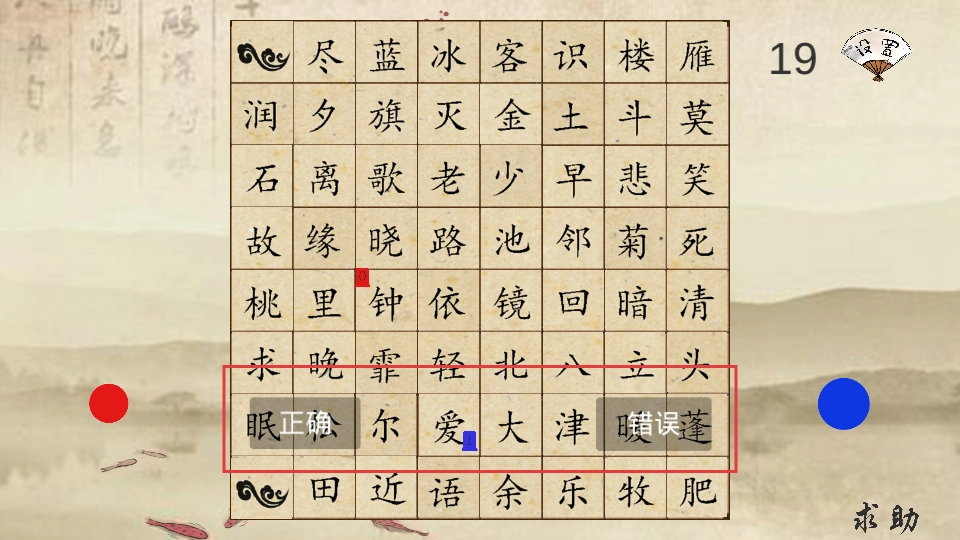 尽 蓝 冰 客 识 楼 雁
19
设置
润 夕 旗 灭 金 土 斗 莫
石 离 歌 老 少 早 悲 笑
故 缘 晓 路 池 邻 菊 死
0
桃 里 钟 依 镜 回 暗 清
求 晚 霏 轻 北 八 立 头
眠 松 尔 爱 大 津 暖 蓬
正确
错误
1
田 近 语 余 乐 牧 肥
求助